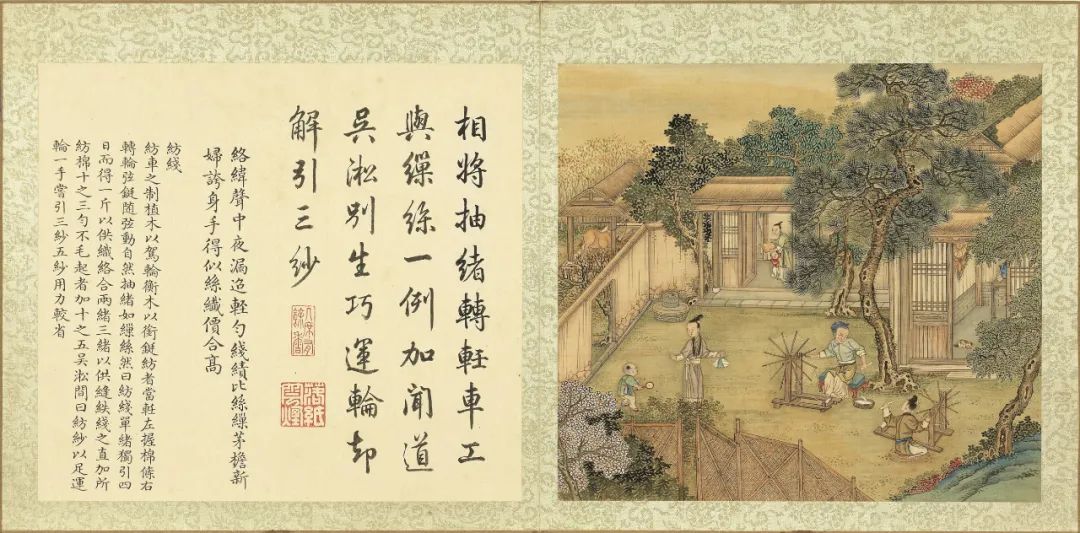 相將抽緒轉軖車工
與繅絲一例加聞道
吳淞別生巧運輪却
解引三紗
絡緯聲中夜漏迢輕勻綫績比絲繅茅檐新
婦誇身手得似絲纖價合高
紡綫
紡車之制植木以駕輪衡木以銜鋌紡者當軖左握棉條右
轉輪弦鋌隨弦動自然抽緒如繅絲然曰紡綫單緒獨引四
日而得一斤以供織絡合兩緒三緒以供縫紩綫之直加所
紡棉十之三勻不毛起者加十之五吳淞間曰紡紗以足運
輪一手嘗引三紗五紗用力較省